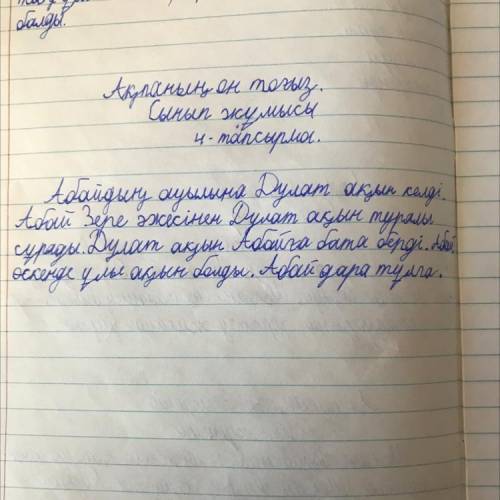 болды.
Ақпаның он тоғыз.
Сынып жұмысы
4-тапсырма.
Абайдың ауылына Дулат ақын келді.
Абай Зере әжесінен Дулат ақын туралы
сұрады. Дулат ақын Абайға бата берді. Абай
өскенде ұлы ақын болды. Абай дара тұлға.